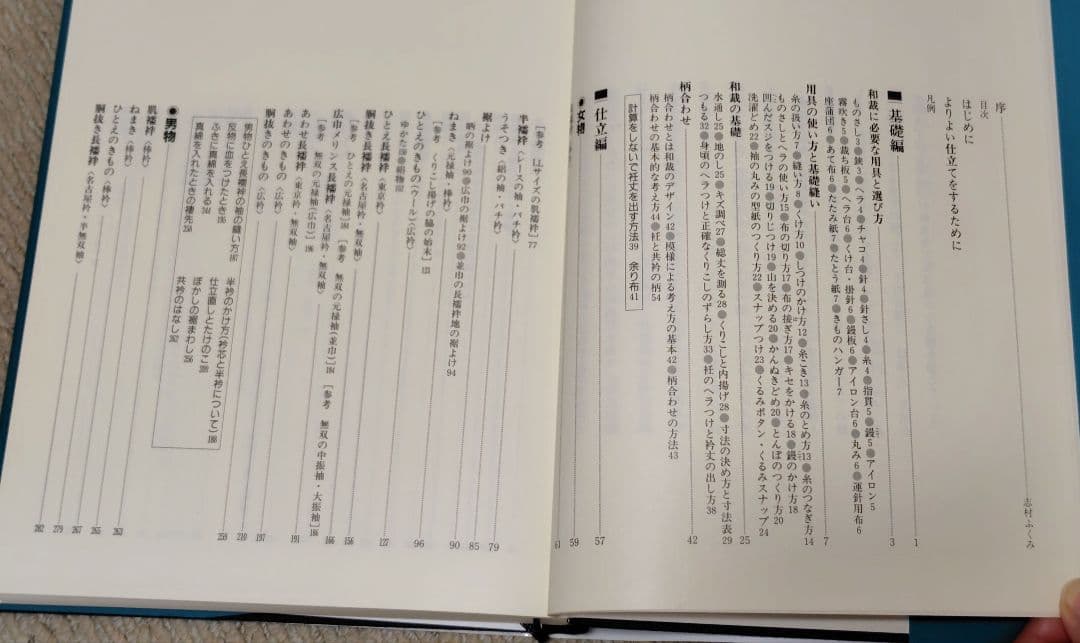 序
志村ふくみ
目次
はじめに
よりよい仕立てをするために 1
凡例
■基礎編 3
和裁に必要な用具と選び方
ものさし3●鋏3●ヘラ4●チャコ4●針4●針さし4●糸4●指貫5●鏝5●アイロン5
霧吹き5●裁ち板5●ヘラ台6●くけ台・掛針6●鏝板6●アイロン台6●丸み6●運針用布6
座蒲団6●あて布6●たたみ紙7●たとう紙7●きものハンガー7
用具の使い方と基礎縫い 7
糸の扱い方7●縫い方8●くけ方10●しつけのかけ方12●糸こき13●糸のとめ方13●糸のつなぎ方14
ものさしとヘラの使い方15●布の切り方17●布の接ぎ方17●キセをかける18●鏝のかけ方18
凹んだスジをつける19●切りじつけ19●山を決める20●かんぬきどめ20●とんぼのつくり方20
洗濯どめ22●袖の丸みの型紙のつくり方22●スナップつけ23●くるみボタン・くるみスナップ24
和裁の基礎 25
水通し25●地のし25●キズ調べ27●総丈を測る28●くりこしと内揚げ28●寸法の決め方と寸法表29
つもる32●身頃のヘラつけと正確なくりこしのずらし方33●衽のヘラつけと衿丈の出し方38
計算をしないで衽丈を出す方法39 余り布41
柄合わせ 42
柄合わせとは和裁のデザイン42●模様による考え方の基本42●柄合わせの方法43
柄合わせの基本的な考え方44●衽と共衿の柄54
■仕立編 57
●女物 59
61
[参考 LLサイズの肌襦袢]77
半襦袢〈レースの袖・バチ衿〉 79
うそつき〈絽の袖・バチ衿〉 85
裾よけ 90
晒の裾よけ90●広巾の裾よけ92●並巾の長襦袢地の裾よけ94
ねまき〈元禄袖 棒衿〉 96
[参考 くりこし揚げの脇の始末]123
ひとえのきもの〈ウール〉〈広衿〉 127
ゆかた130●絹物132
胴抜き長襦袢〈東京衿〉
ひとえ長襦袢〈名古屋衿 無双袖〉 156
[参考 ひとえの元禄袖]164 [参考 無双の元禄袖〈並巾〉]184 [参考 無双の中振袖・大振袖]186
広巾メリンス長襦袢〈名古屋衿・無双袖〉 166
[参考 無双の元禄袖〈広巾〉]196
あわせ長襦袢〈東京衿・無双袖〉 191
あわせのきもの〈広衿〉 197
胴抜きのきもの〈広衿〉 210
258
男物ひとえ長襦袢の袖の縫い方167
反物に血をつけたとき195
ふきに真綿を入れる244
真綿を入れたときの褄先256
半衿のかけ方(衿芯と半衿について)188
仕立直しとたけのこ209
ぼかしの裾まわし256
共衿のはなし262
●男物
肌襦袢 263
ねまき〈棒衿〉 265
ひとえのきもの〈棒衿〉 267
あわせ長襦袢 279
胴抜き長襦袢〈名古屋衿・半無双袖〉 282